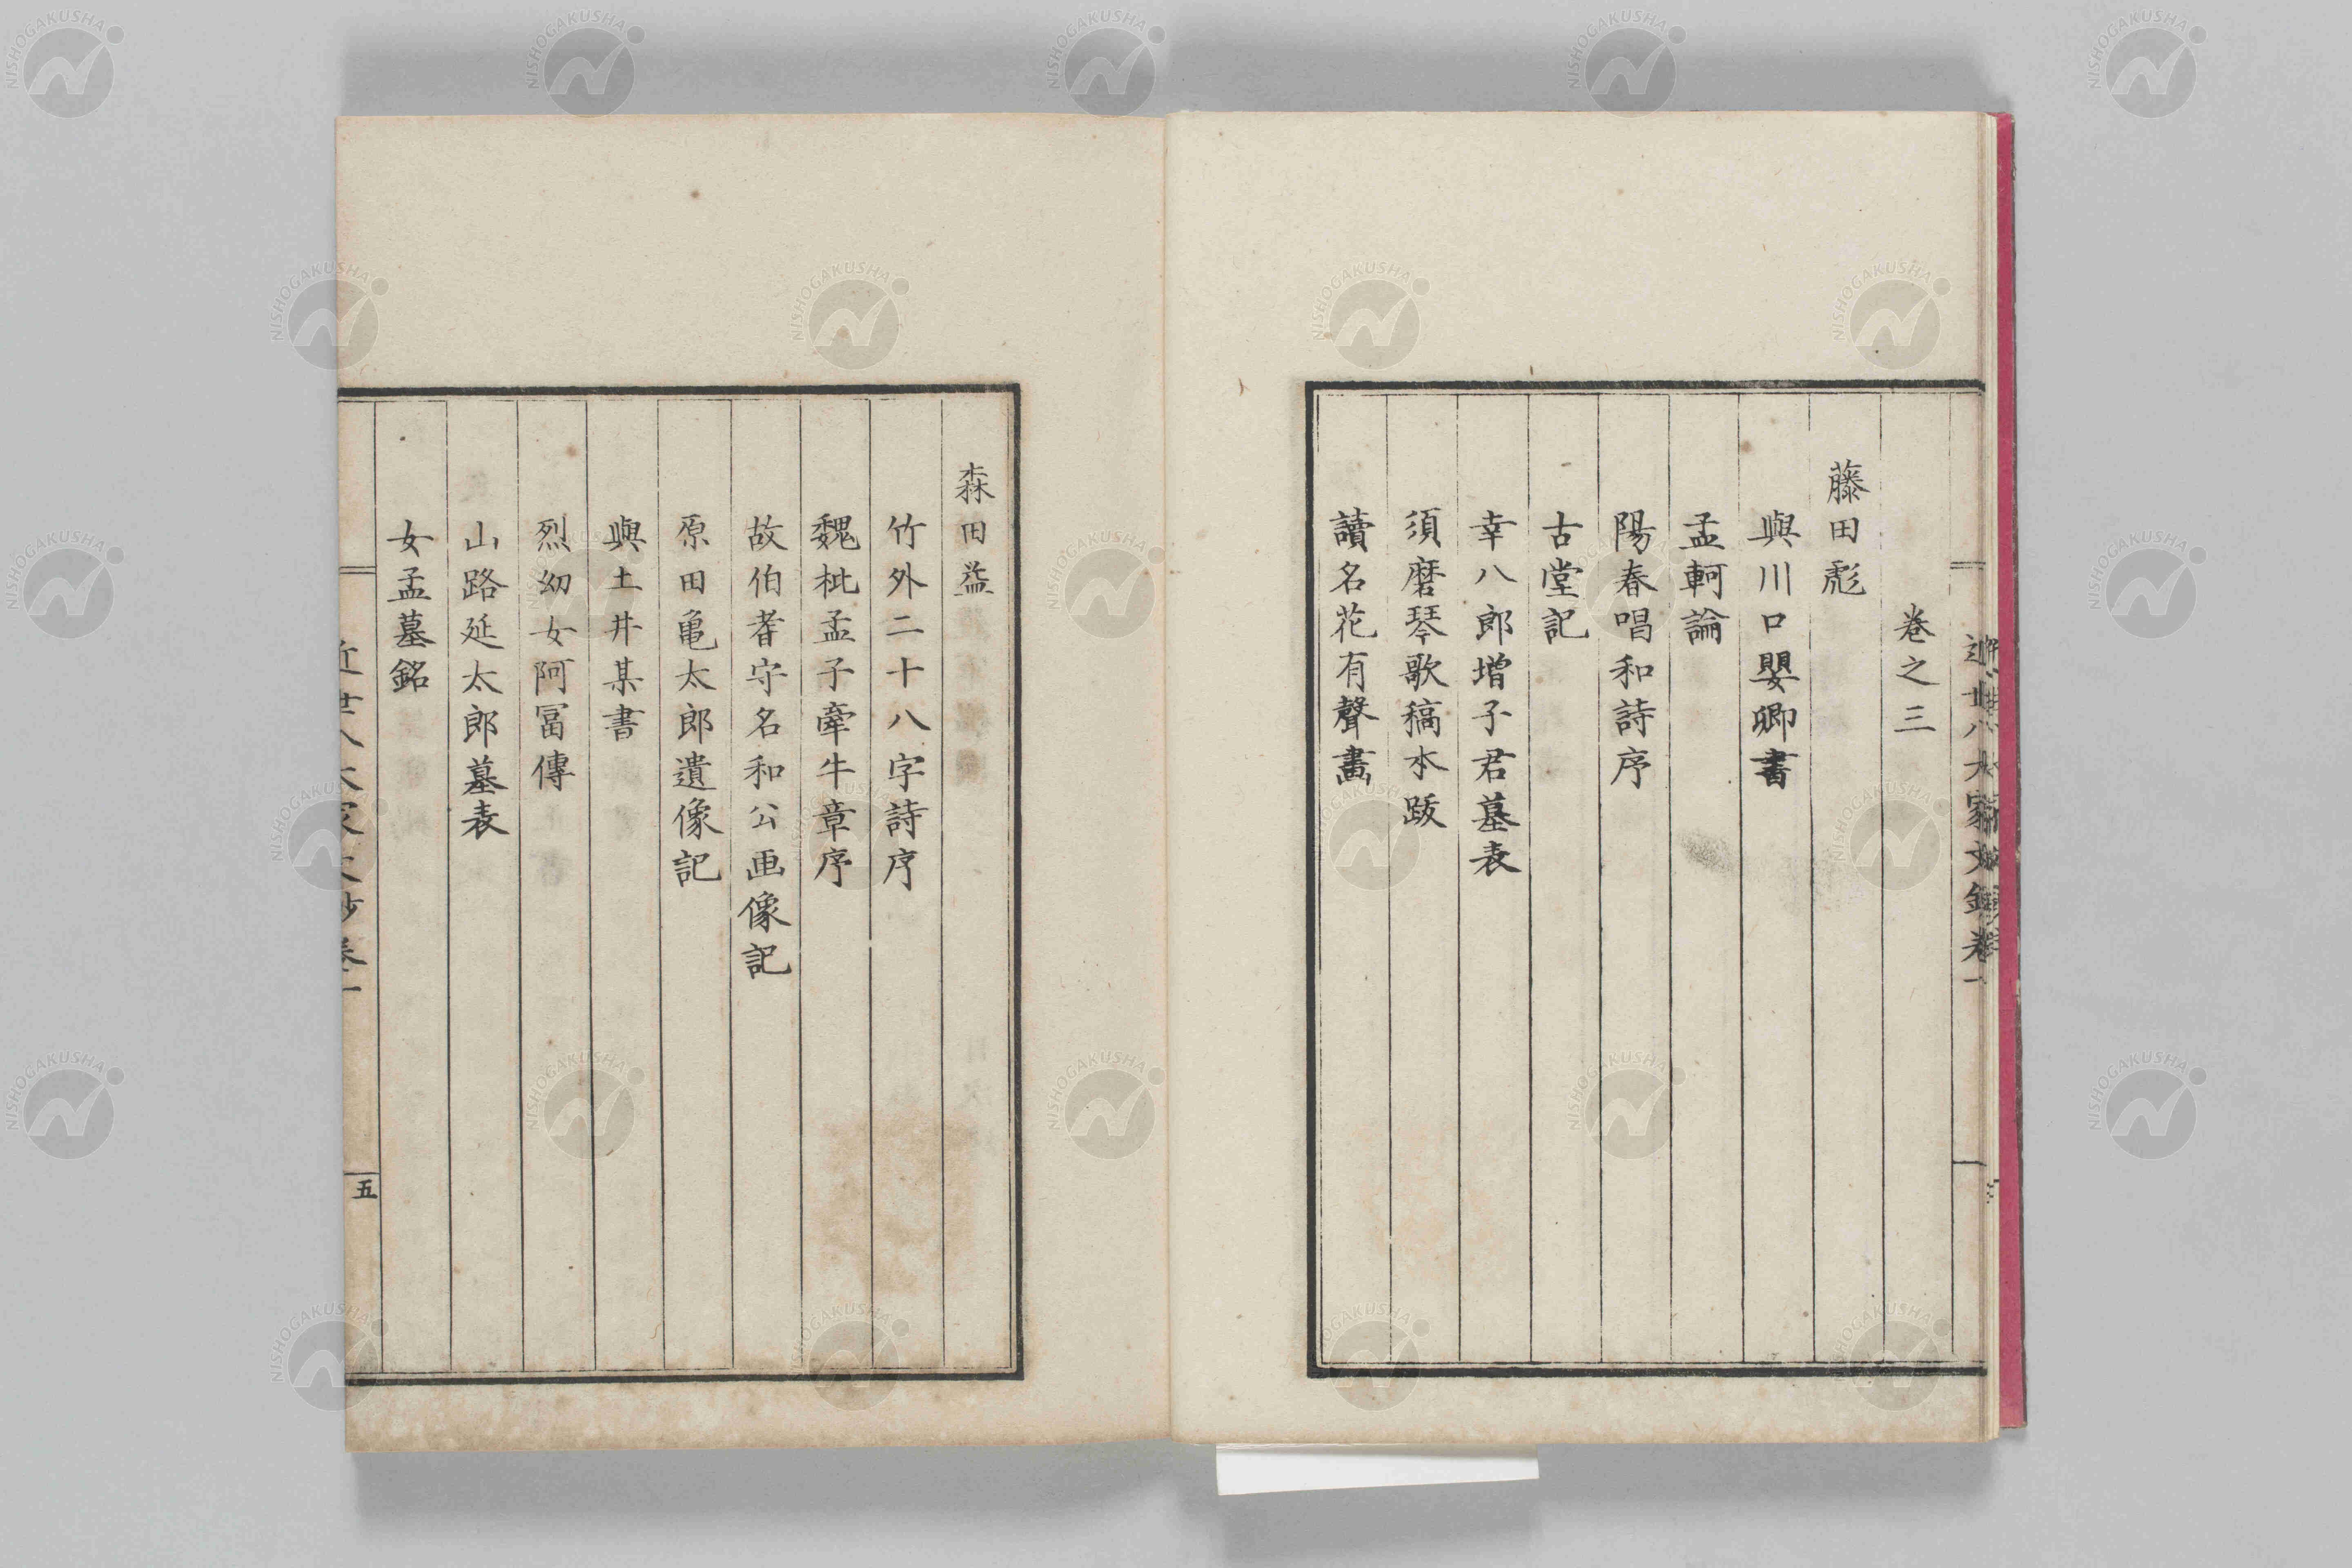 卷之三
藤田彪
與川口嬰卿書
孟軻論
陽春唱和詩序
古堂記
幸八郎增子君墓表
須磨琴歌稿本跋
讀名花有聲畵
森田益
竹外二十八字詩序
魏枇孟子牽牛章序
故伯耆守名和公画像記
原田亀太郎遺像記
與土井某書
烈幼女阿冨傳
山路延太郎墓表
女孟墓銘
五
NISHOGAKUSHA